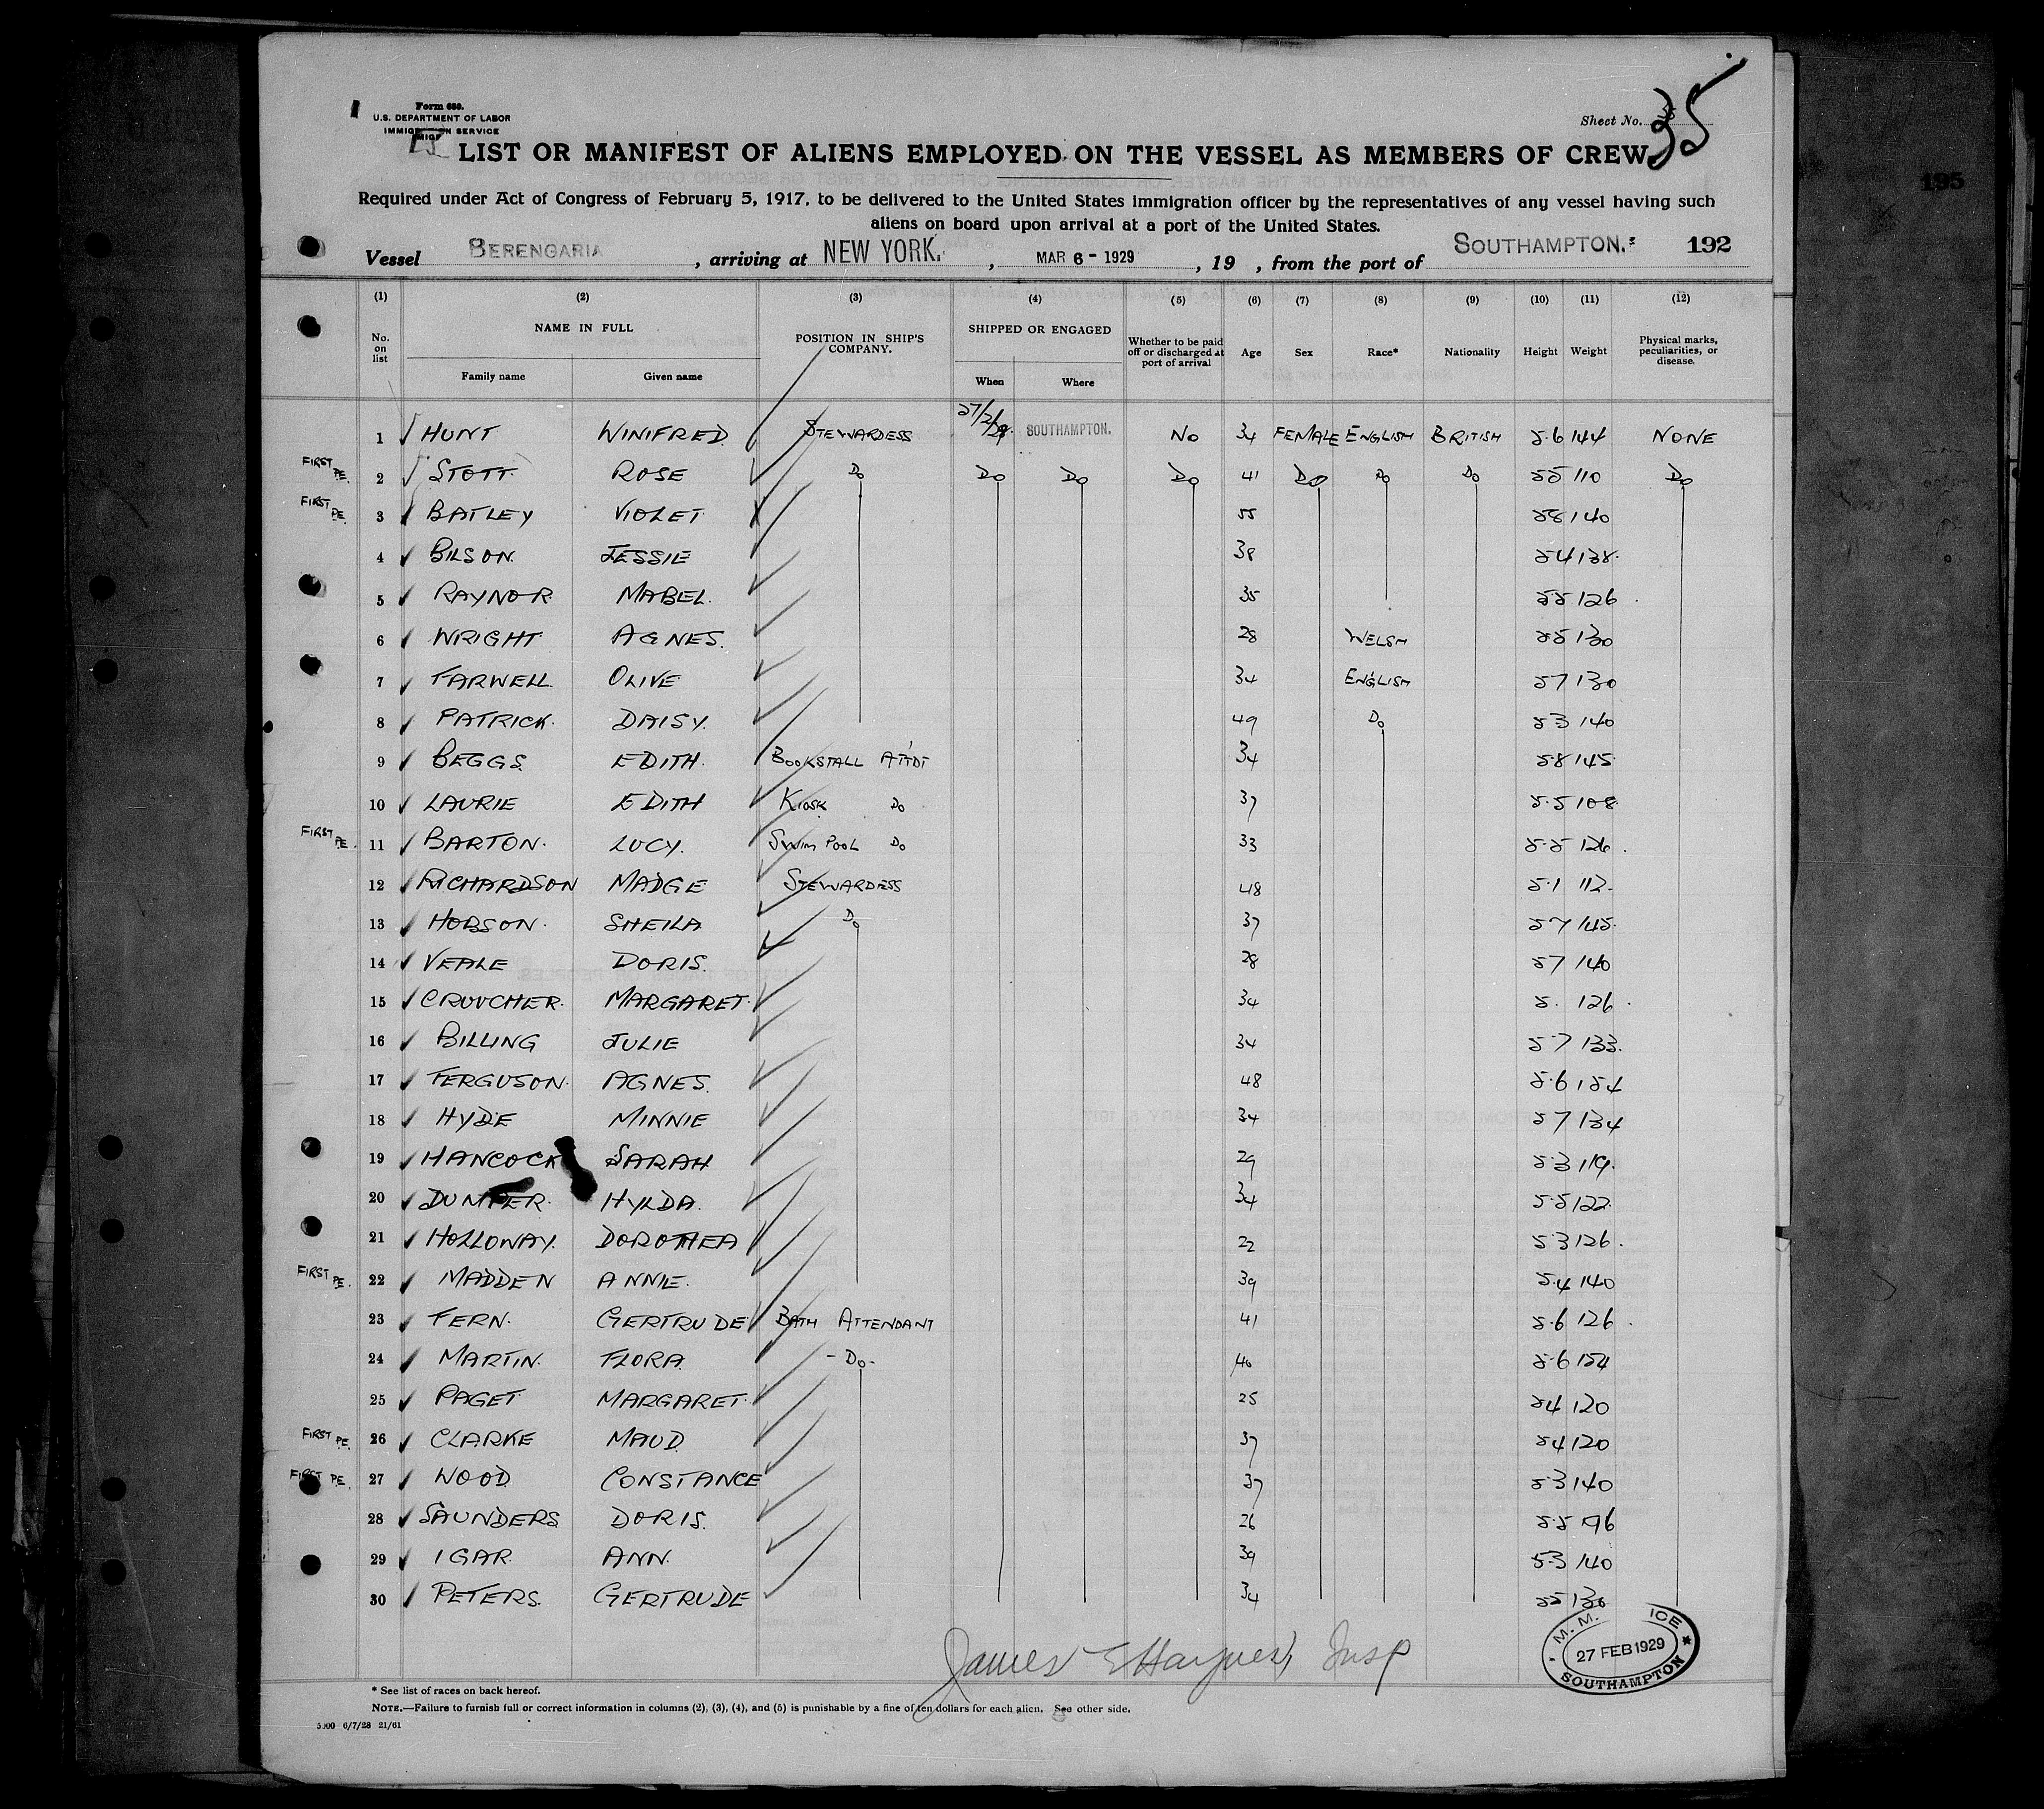 Form 680.
U.S. DEPARTMENT OF LABOR
IMMIGRATION SERVICE
Sheet No. 35
LIST OR MANIFEST OF ALIENS EMPLOYED ON THE VESSEL AS MEMBERS OF CREW
Required under Act of Congress of February 5, 1917, to be delivered to the United States immigration officer by the representatives of any vessel having such
aliens on board upon arrival at a port of the United States.
195
Vessel BERENGARIA, arriving at NEW YORK., MAR 6 - 1929, 19 , from the port of SOUTHAMPTON. 192
(1) (2) (3) (4) (5) (6) (7) (8) (9) (10) (11) (12)
No. on list NAME IN FULL Family name Given name POSITION IN SHIP'S COMPANY. SHIPPED OR ENGAGED When Where Whether to be paid off or discharged at port of arrival Age Sex Race* Nationality Height Weight Physical marks, peculiarities, or disease.
1 HUNT WINIFRED STEWARDESS 27/2/29. SOUTHAMPTON. NO 34 FEMALE ENGLISH BRITISH 5.6 144 NONE
FIRST PE. 2 STOTT ROSE DO DO DO DO 41 DO DO DO 55 110 DO
FIRST PE. 3 BATLEY VIOLET 55 58 140
4 BILSON. JESSIE 38 54 138.
5 RAYNOR MABEL. 35 55 126
6 WRIGHT AGNES. 28 WELSH 55 130
7 FARWELL OLIVE 34 ENGLISH 57 130
8 PATRICK. DAISY. 49 DO 53 140
9 BEGGS EDITH. BOOKSTALL ATTDT 34 5.8 145.
10 LAURIE EDITH KIOSK DO 37 5.5 108.
FIRST PE. 11 BARTON. LUCY. SWIM POOL DO 33 5.5 126.
12 RICHARDSON MADGE STEWARDESS 48 5.1 112.
13 HOBSON. SHEILA DO 37 57 145.
14 VEALE DORIS. 28 57 140
15 CROUCHER. MARGARET. 34 5. 126.
16 BILLING JULIE 34 57 133.
17 FERGUSON. AGNES. 48 5.6 154
18 HYDE MINNIE 34 57 134
19 HANCOCK SARAH 29 5.3 119.
20 DUMPER. HYLDA. 34 5.5 122.
21 HOLLOWAY. DOROTHEA 22 53 126.
FIRST PE. 22 MADDEN ANNIE. 39 5.4 140
23 FERN. GERTRUDE BATH ATTENDANT 41 5.6 126.
24 MARTIN. FLORA - DO - 40 5.6 154
25 PAGET MARGARET. 25 54 120
FIRST PE. 26 CLARKE MAUD 37 54 120
FIRST PE. 27 WOOD CONSTANCE 37 53 140
28 SAUNDERS DORIS. 26 5.5 96
29 IGAR ANN. 39 53 140
30 PETERS. GERTRUDE 34 55 130
James E Haynes, Insp
M. M. ICE
27 FEB 1929
SOUTHAMPTON
* See list of races on back hereof.
NOTE.—Failure to furnish full or correct information in columns (2), (3), (4), and (5) is punishable by a fine of ten dollars for each alien. See other side.
5000 6/7/28 21/61